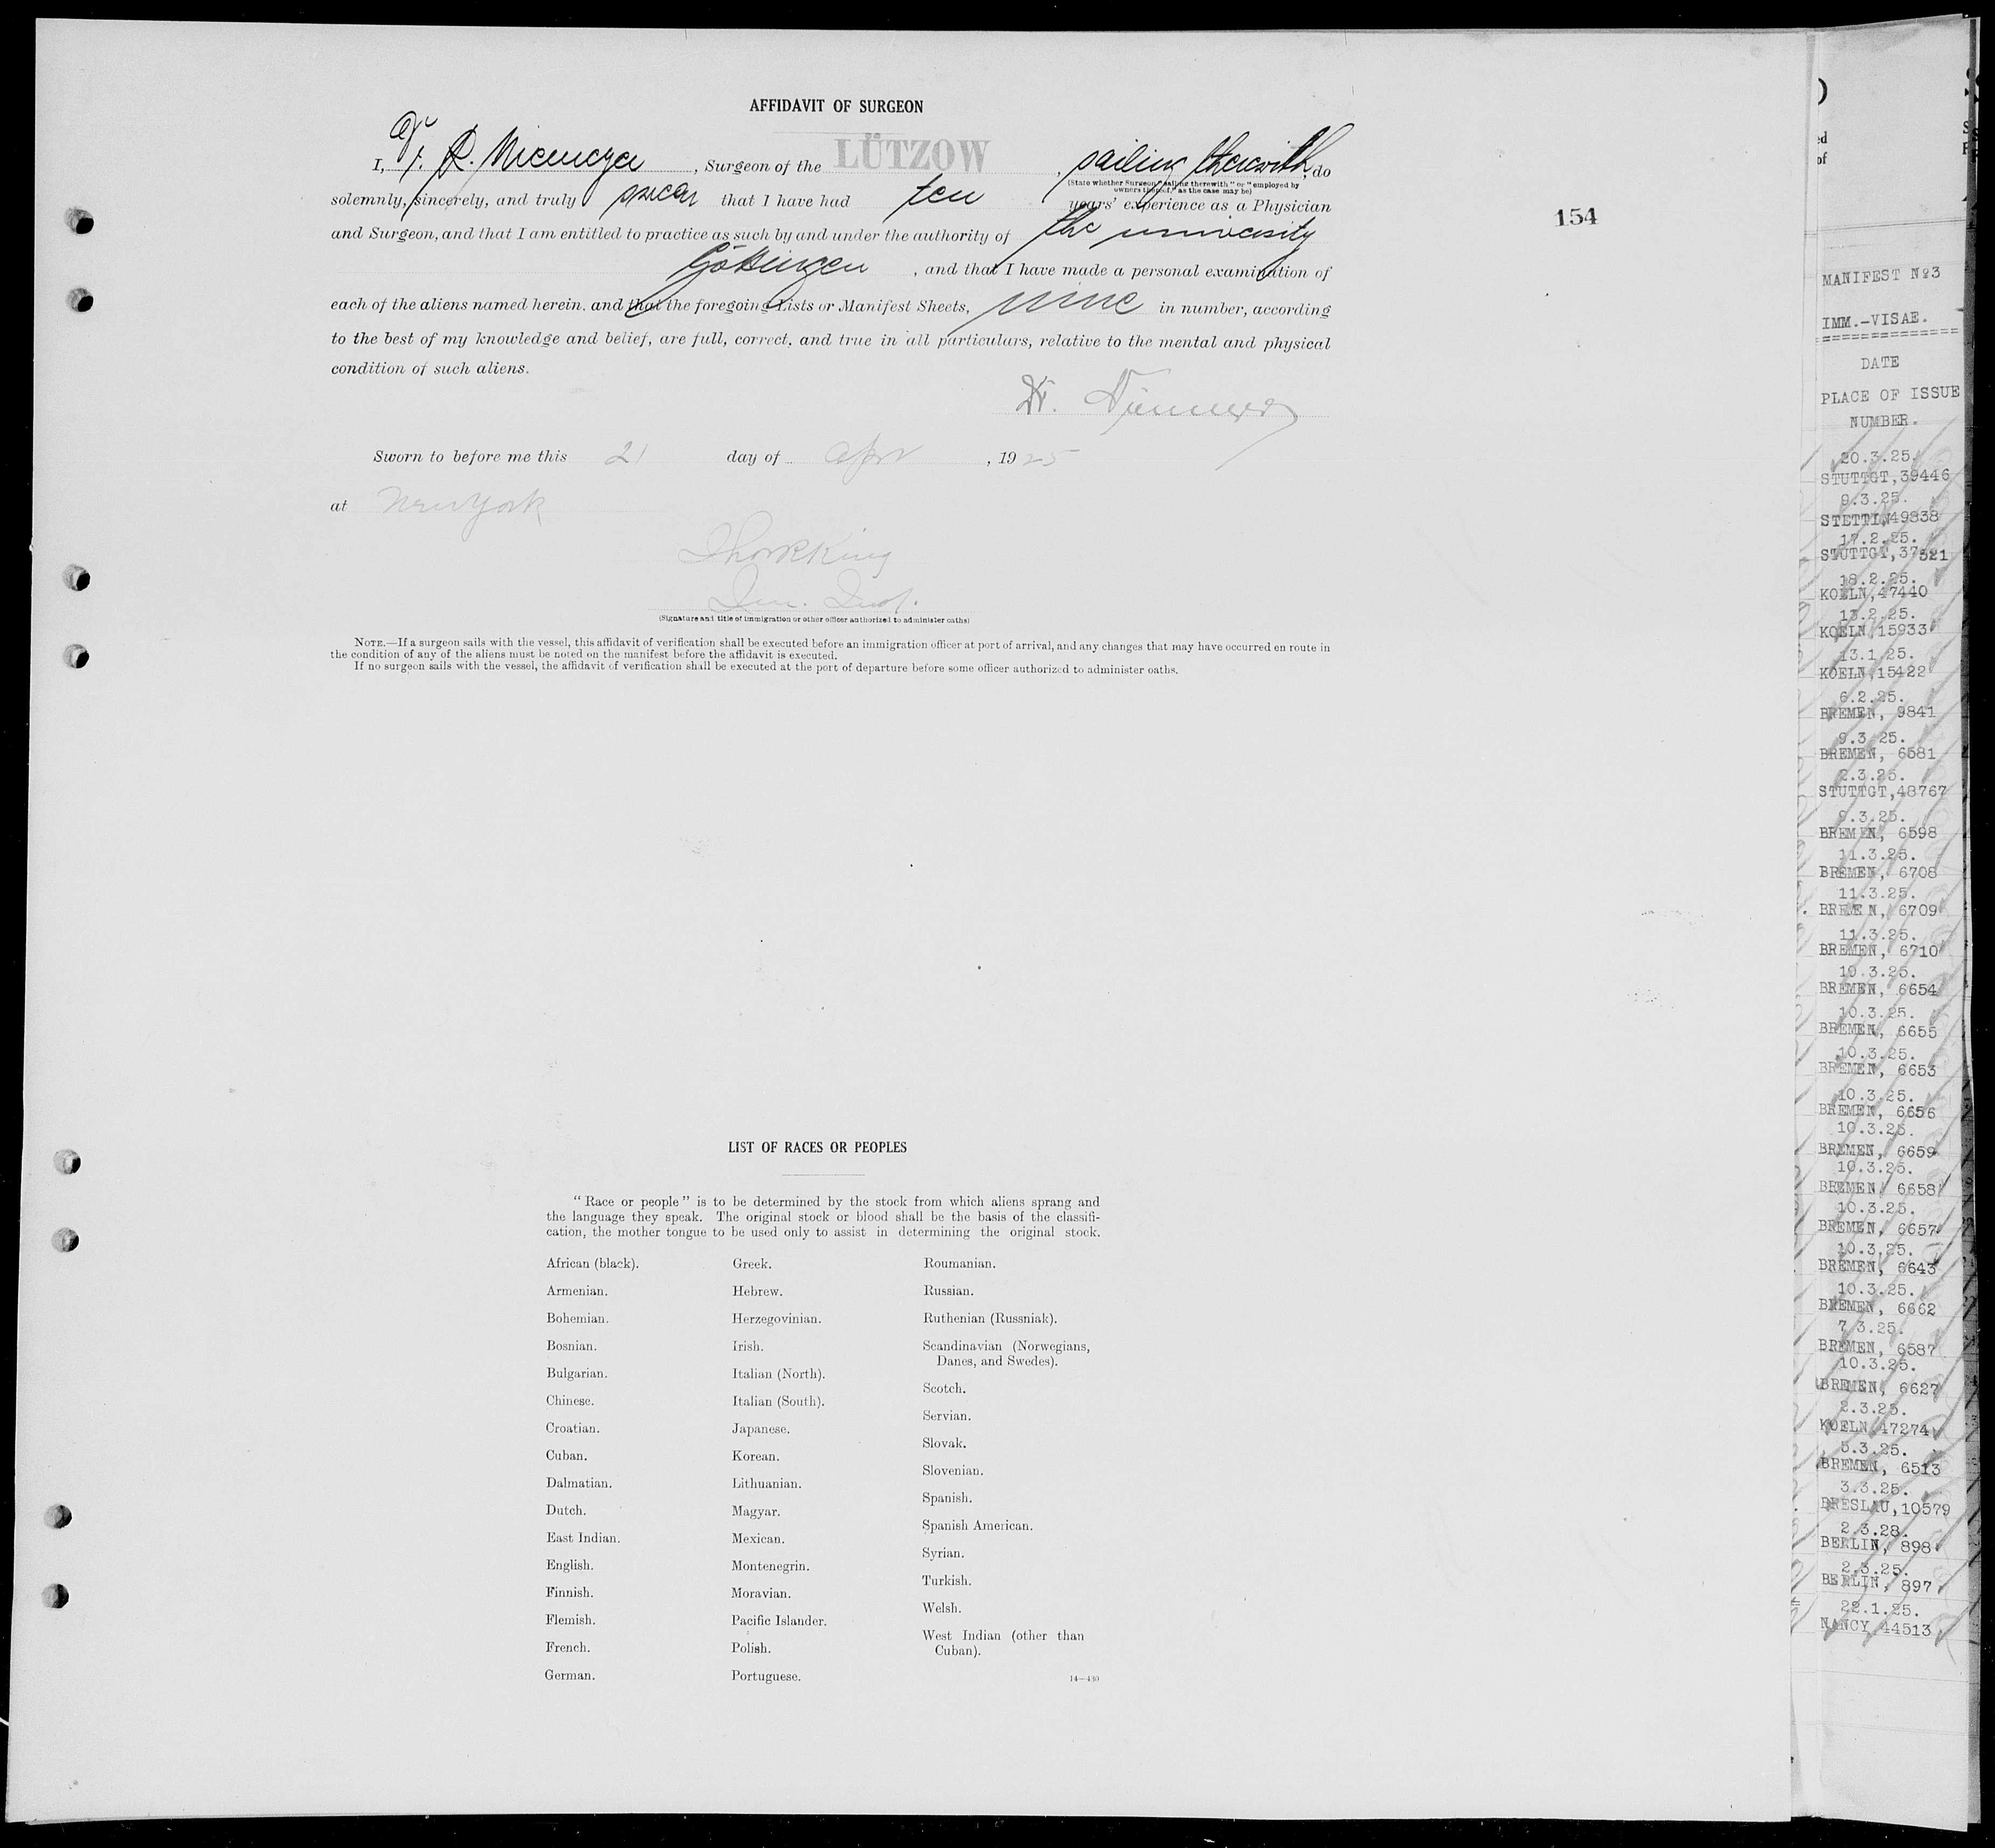 AFFIDAVIT OF SURGEON
I, Dr. R. , Surgeon of the LÜTZOW , sailing therewith, do
(State whether Surgeon "sailing therewith" or "employed by
owners thereof," as the case may be)
solemnly, sincerely, and truly swear that I have had ten years' experience as a Physician
and Surgeon, and that I am entitled to practice as such by and under the authority of the university
Göttingen , and that I have made a personal examination of
each of the aliens named herein, and that the foregoing Lists or Manifest Sheets, nine in number, according
to the best of my knowledge and belief, are full, correct, and true in all particulars, relative to the mental and physical
condition of such aliens.
Dr.
Sworn to before me this 21 day of Apr , 1925
at New York
King
Im. Insp.
(Signature and title of immigration or other officer authorized to administer oaths)
NOTE.—If a surgeon sails with the vessel, this affidavit of verification shall be executed before an immigration officer at port of arrival, and any changes that may have occurred en route in
the condition of any of the aliens must be noted on the manifest before the affidavit is executed.
If no surgeon sails with the vessel, the affidavit of verification shall be executed at the port of departure before some officer authorized to administer oaths.
154
LIST OF RACES OR PEOPLES
"Race or people" is to be determined by the stock from which aliens sprang and
the language they speak. The original stock or blood shall be the basis of the classifi-
cation, the mother tongue to be used only to assist in determining the original stock.
African (black).
Armenian.
Bohemian.
Bosnian.
Bulgarian.
Chinese.
Croatian.
Cuban.
Dalmatian.
Dutch.
East Indian.
English.
Finnish.
Flemish.
French.
German.
Greek.
Hebrew.
Herzegovinian.
Irish.
Italian (North).
Italian (South).
Japanese.
Korean.
Lithuanian.
Magyar.
Mexican.
Montenegrin.
Moravian.
Pacific Islander.
Polish.
Portuguese.
Roumanian.
Russian.
Ruthenian (Russniak).
Scandinavian (Norwegians,
Danes, and Swedes).
Scotch.
Servian.
Slovak.
Slovenian.
Spanish.
Spanish American.
Syrian.
Turkish.
Welsh.
West Indian (other than
Cuban).
14—430
ed
of
MANIFEST Nº3
IMM.-VISAE.
==============
DATE
PLACE OF ISSUE
NUMBER.
20.3.25.
STUTTGT,39446
9.3.25.
STETTIN,49838
17.2.25.
STUTTGT,37521
18.2.25.
KOELN,47440
13.2.25.
KOELN,15933
13.1.25.
KOELN,15422
6.2.25.
BREMEN, 9841
9.3.25.
BREMEN, 6581
2.3.25.
STUTTGT,48767
9.3.25.
BREMEN, 6598
11.3.25.
BREMEN, 6708
11.3.25.
BREMEN, 6709
11.3.25.
BREMEN, 6710
10.3.25.
BREMEN, 6654
10.3.25.
BREMEN, 6655
10.3.25.
BREMEN, 6653
10.3.25.
BREMEN, 6656
10.3.25.
BREMEN, 6659
10.3.25.
BREMEN, 6658
10.3.25.
BREMEN, 6657
10.3.25.
BREMEN, 6643
10.3.25.
BREMEN, 6662
7.3.25.
BREMEN, 6587
10.3.25.
BREMEN, 6627
2.3.25.
KOELN,47274
5.3.25.
BREMEN, 6513
3.3.25.
BRESLAU,10579
2.3.28.
BERLIN, 898
2.3.25.
BERLIN, 897
22.1.25.
NANCY,44513